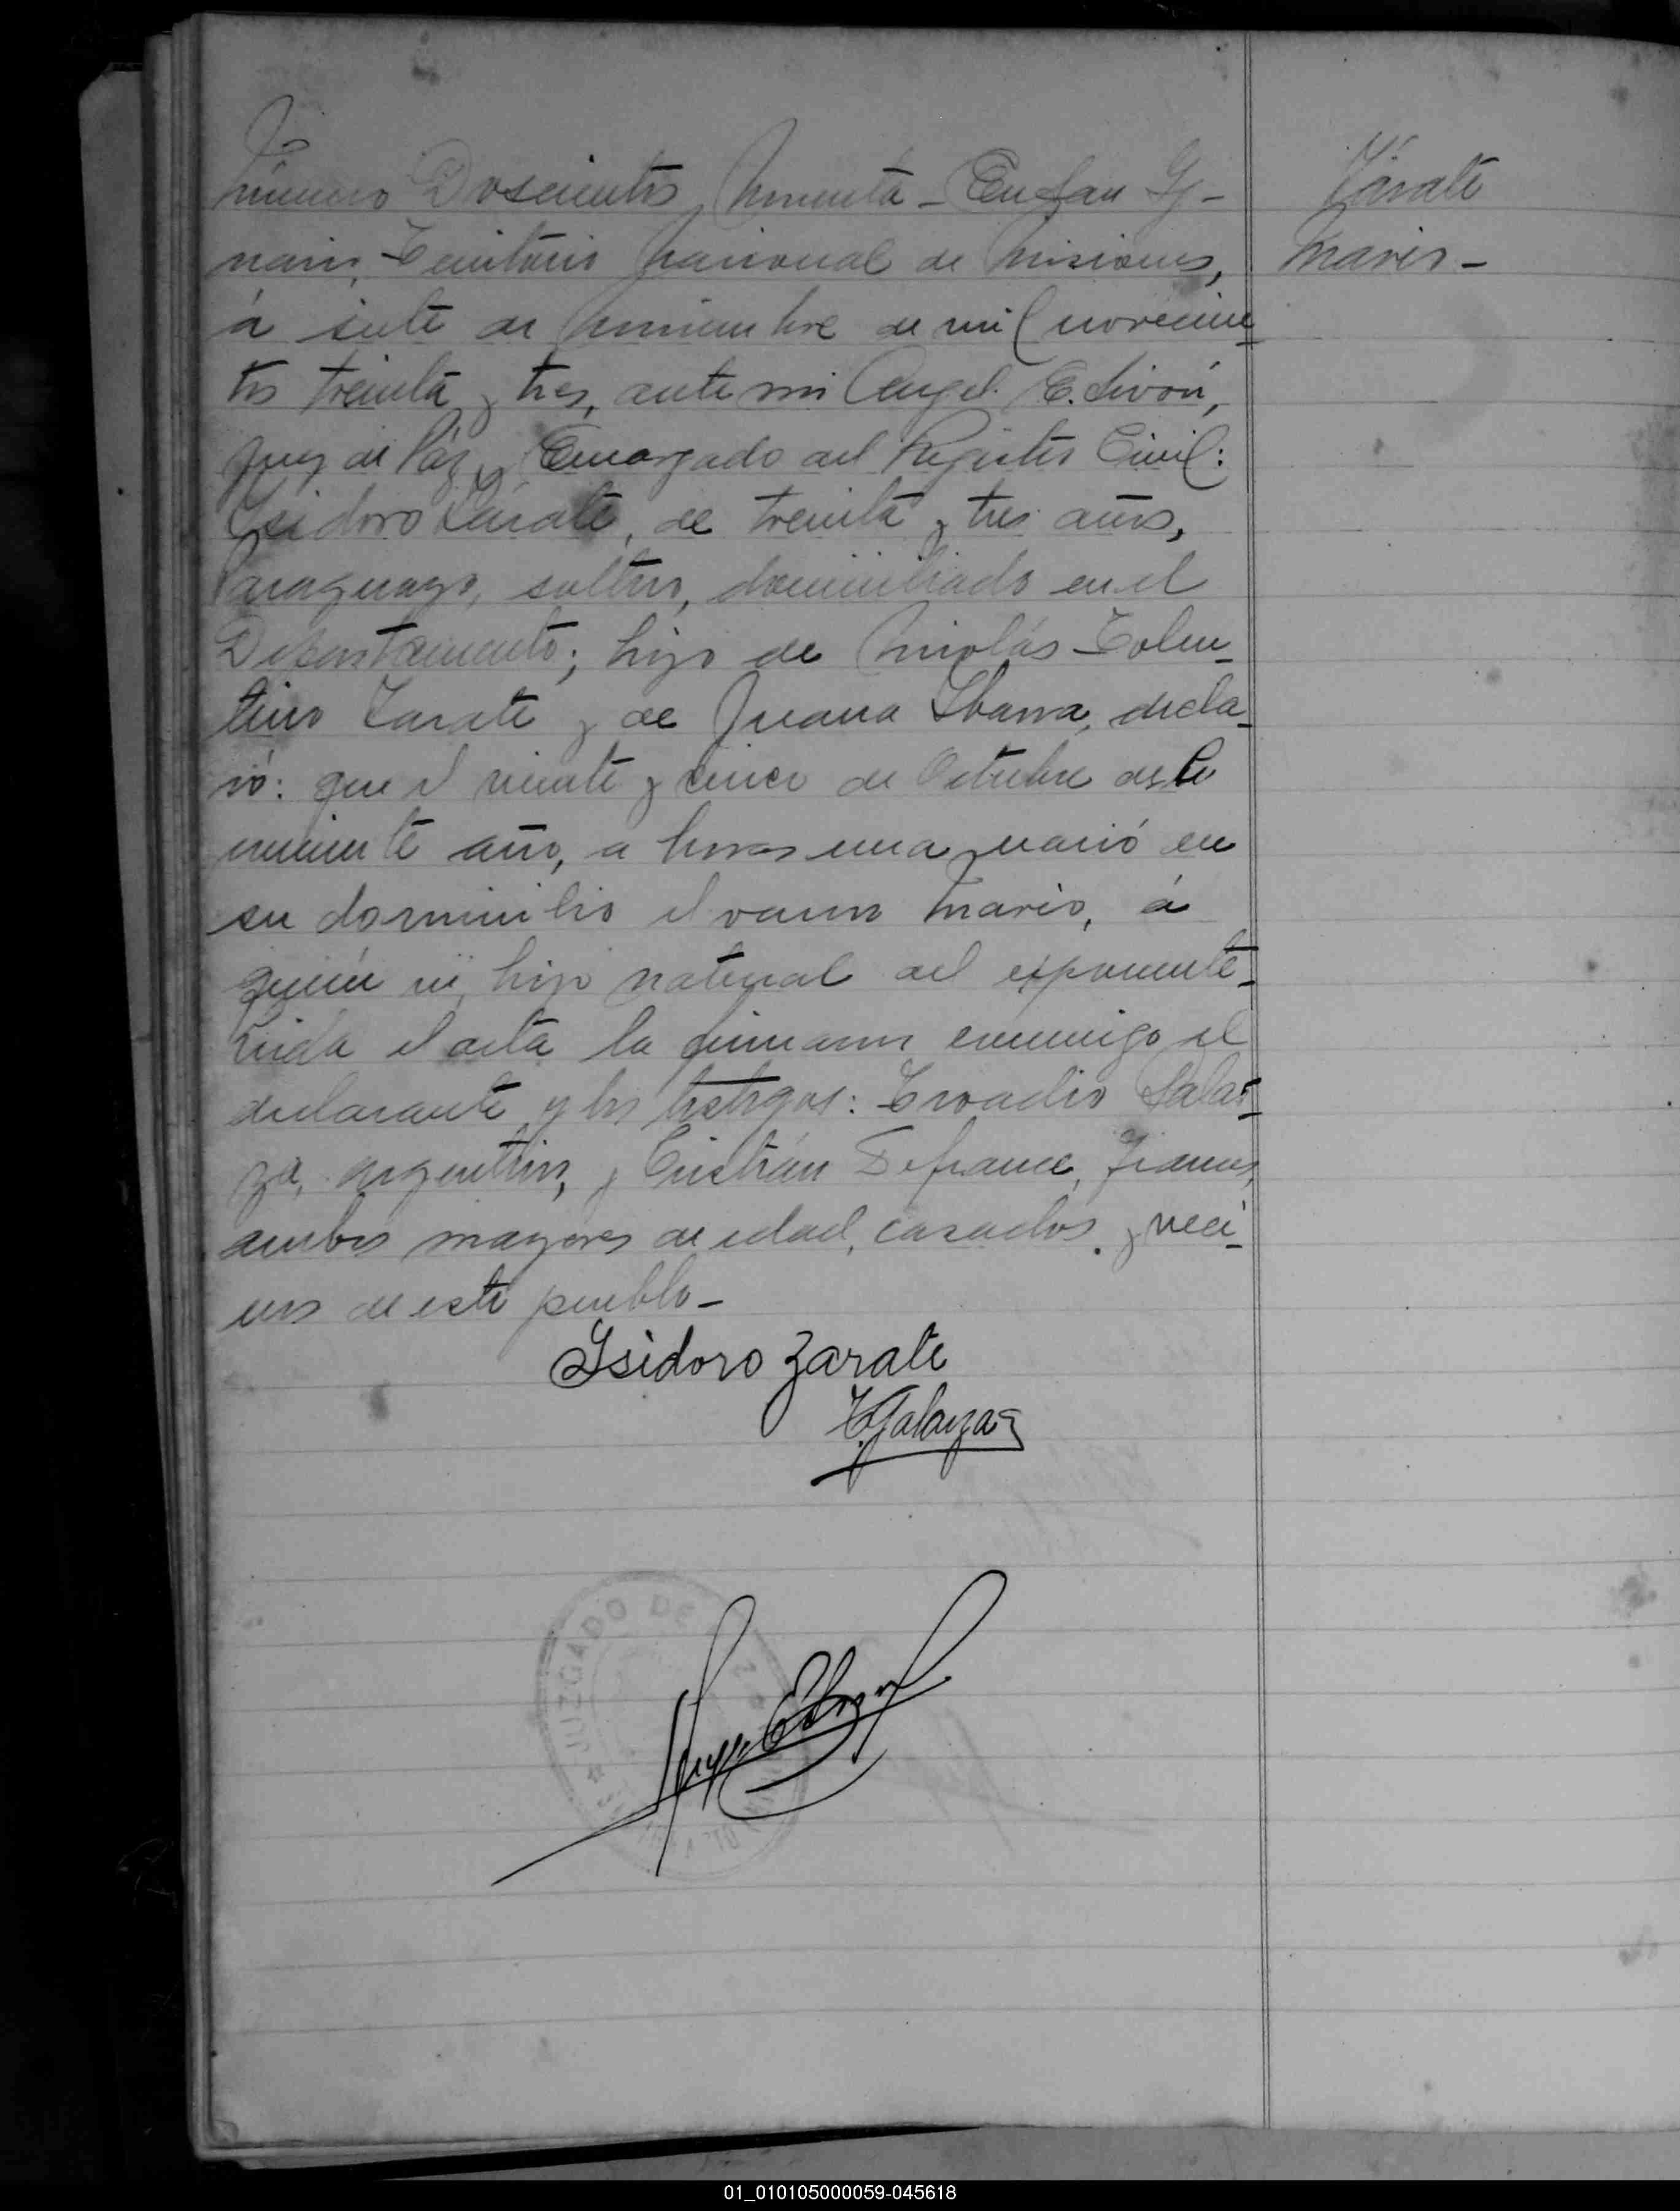 Número Doscientos Noventa - En San Ig-
nacio, Territorio Nacional de Misiones,
á siete de Noviembre de mil novecien-
tos treinta y tres, ante mi Angel E.
Juez de Páz y Encargado del Registro Civil:
Isidoro Zárate, de treinta y tres años,
Paraguayo, soltero, domiciliado en el
Departamento; hijo de Nicolás Tolen-
tino Zarate y de Juana Ybarra, decla-
ró: que el veinte y cinco de Octubre del co
rriente año, a horas una, nació en
su domicilio el varon Mario, á
quien vi, hijo natural del exponente-
Leida el acta la firmaron conmigo el
declarante y los testigos: Salar-
za, argentino, y Cristián Defrance, Francés,
ambos mayores de edad, casados y veci-
nos de este pueblo-
Isidoro Zarate
Zárate
Mario-
JUZGADO DE
01_010105000059-045618